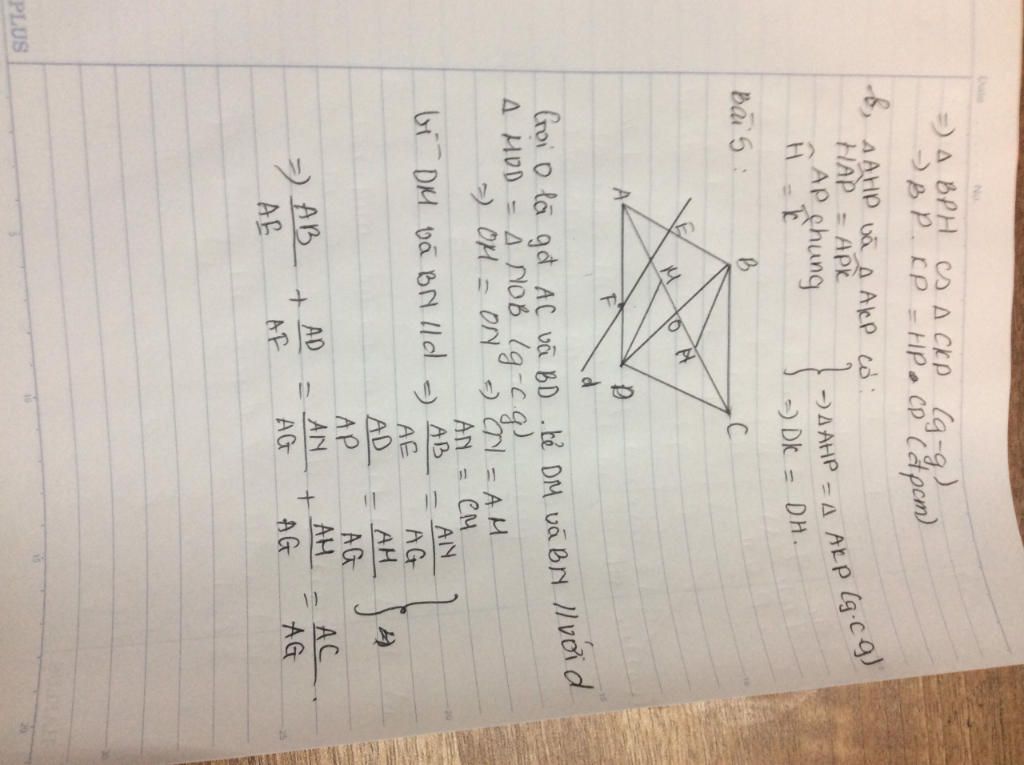 PLUS
Date No.
=) Δ BPH ∽ Δ CKP (g-g)
=) BP . KP = HP . CP (đpcm)
b, Δ AHP và Δ AKP có:
HAP = APK
AP chung
H = K
} =) ΔAHP = Δ AKP (g.c.g)
=) DK = DH.
Bài 5:
A E B
M
F O N
D C
d
Gọi O là gđ AC và BD . kẻ DM và BN // với d
Δ MOD = Δ NOB (g-c-g)
=) OM = ON =) CN = AM
AN = CM
Vì DM và BN // d =) AB/AE = AN/AG
AD/AP = AM/AG } =)
=) AB/AE + AD/AF = AN/AG + AM/AG = AC/AG .